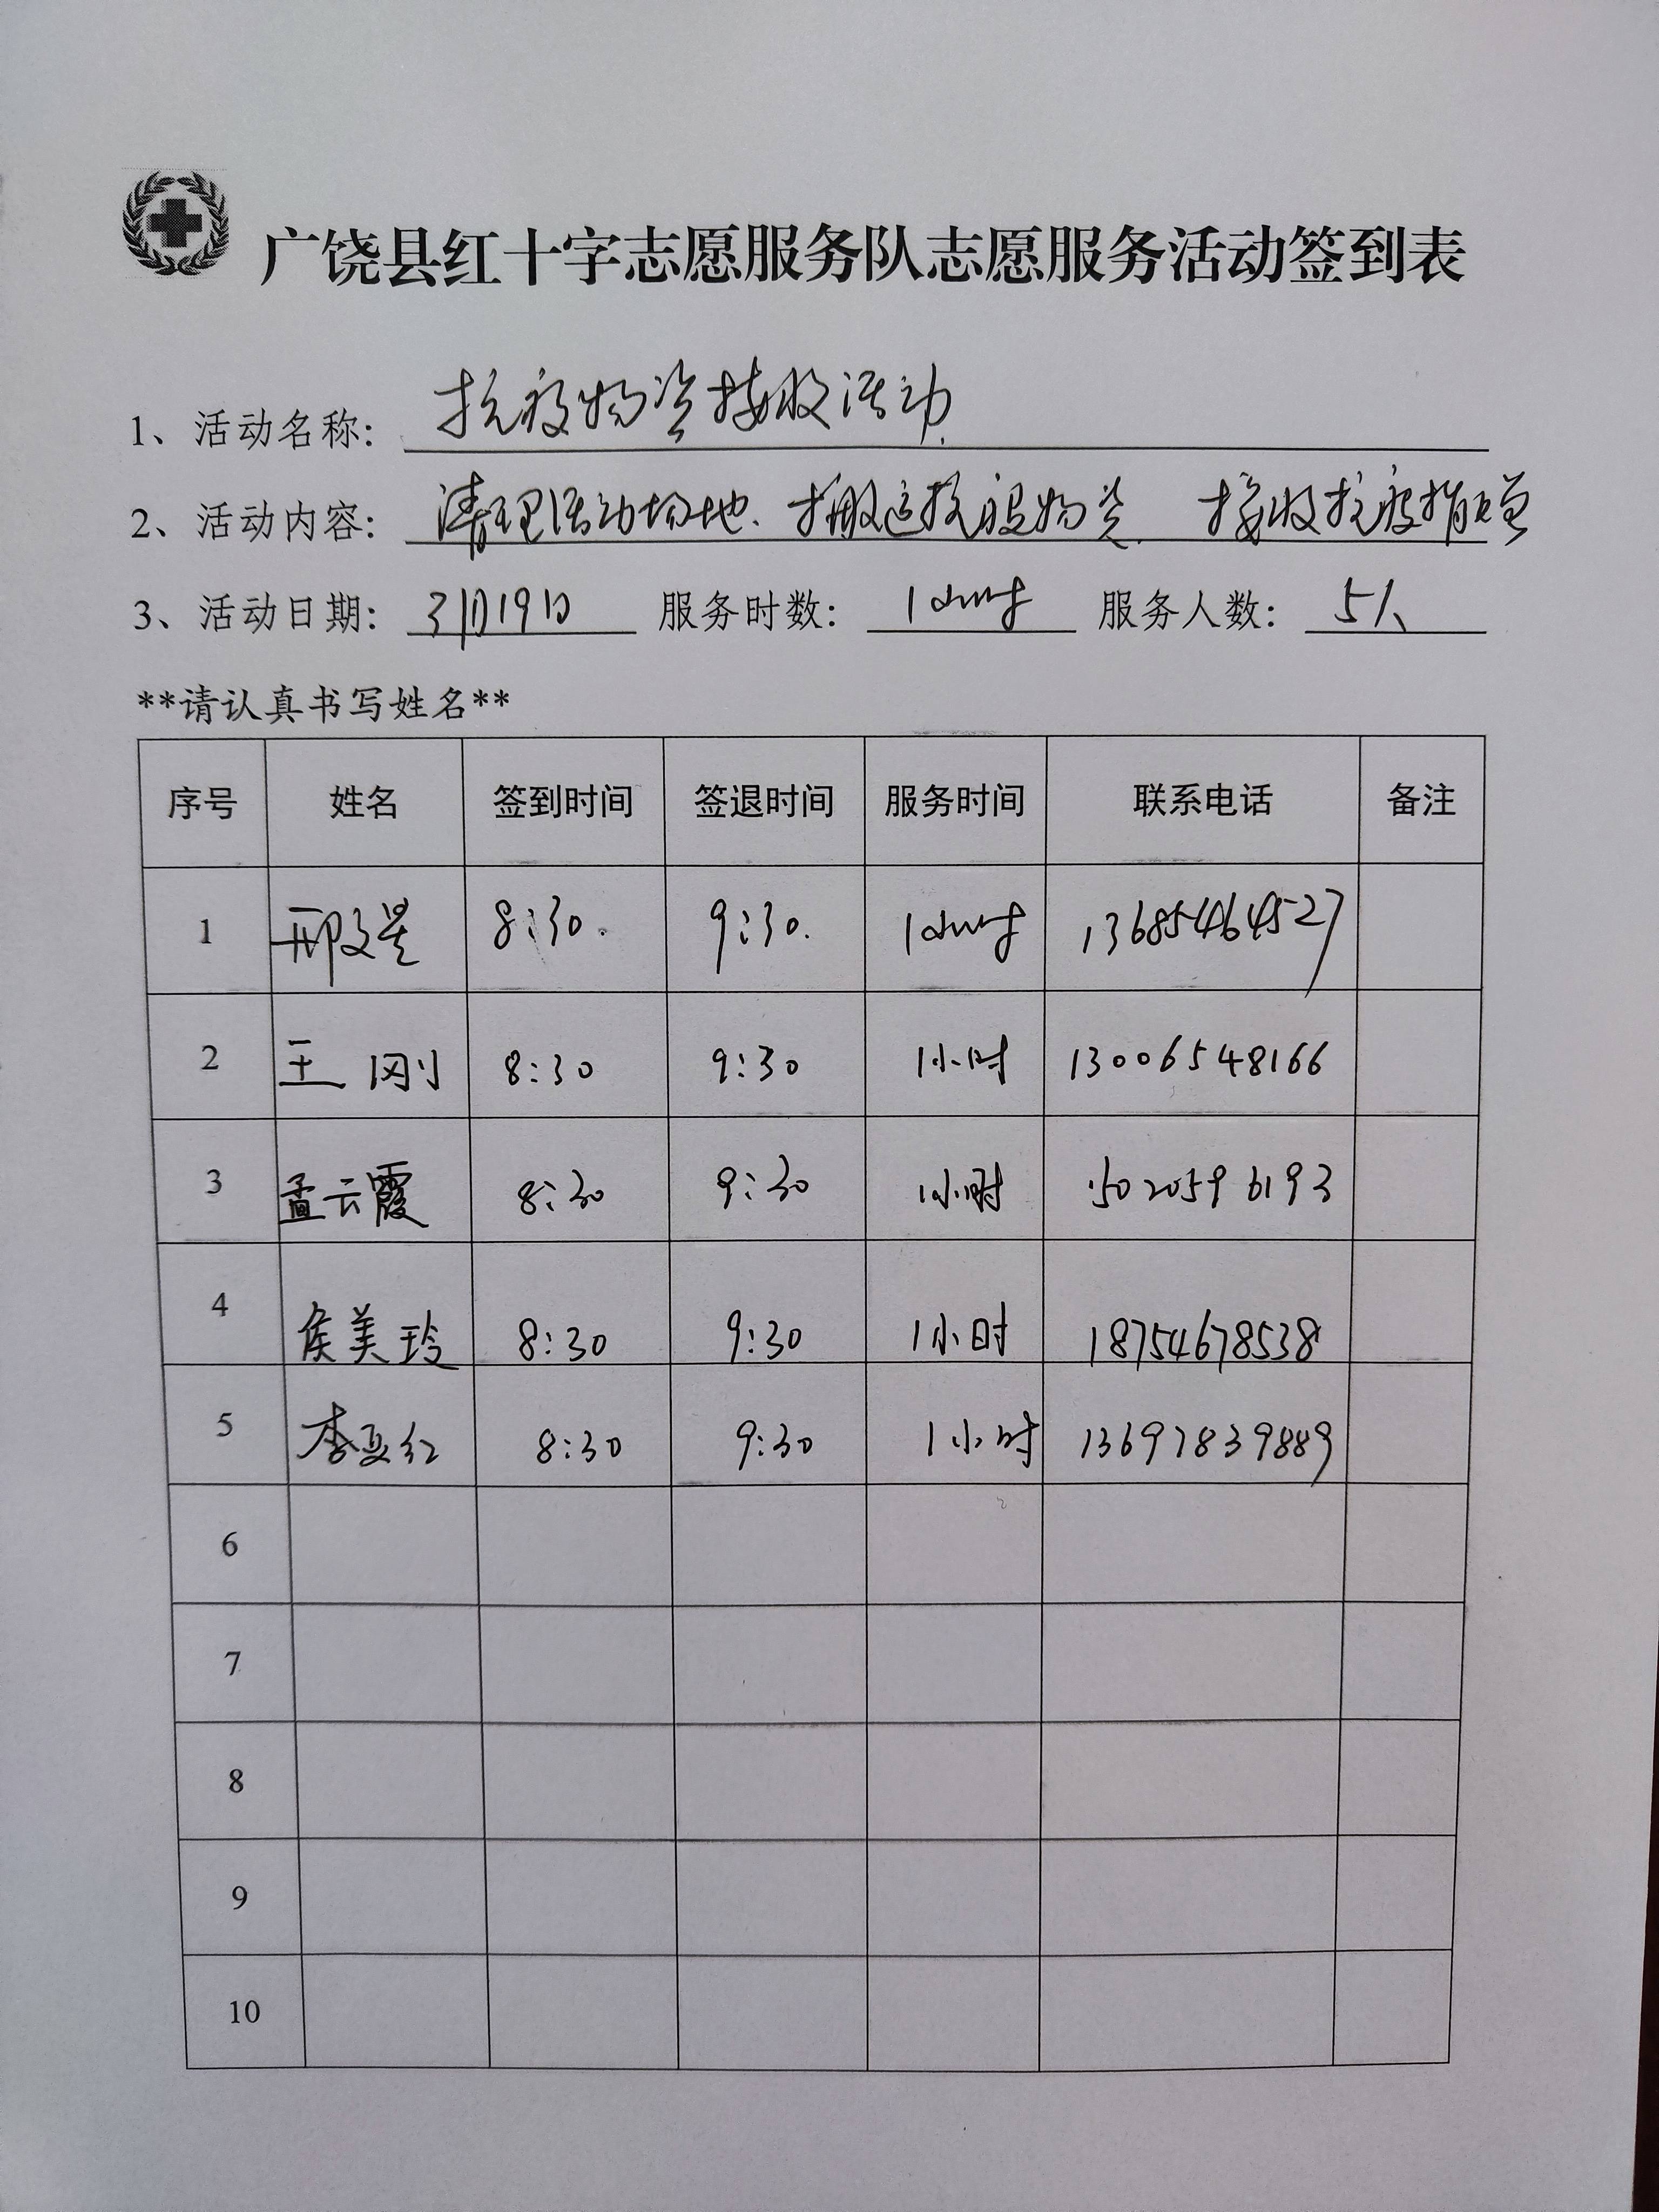 广饶县红十字志愿服务队志愿服务活动签到表
1、活动名称： 抗疫物资接收活动
2、活动内容： 清理活动场地、搬运抗疫物资、接收抗疫捐赠
3、活动日期： 3月19日 服务时数： 1小时 服务人数： 5人
**请认真书写姓名**
序号 姓名 签到时间 签退时间 服务时间 联系电话 备注
1 邢文星 8:30. 9:30. 1小时 13685464527
2 王刚 8:30 9:30 1小时 13006548166
3 孟云霞 8:30 9:30 1小时 15020596193
4 侯美玲 8:30 9:30 1小时 18754678538
5 李夏红 8:30 9:30 1小时 13697839889
6
7
8
9
10